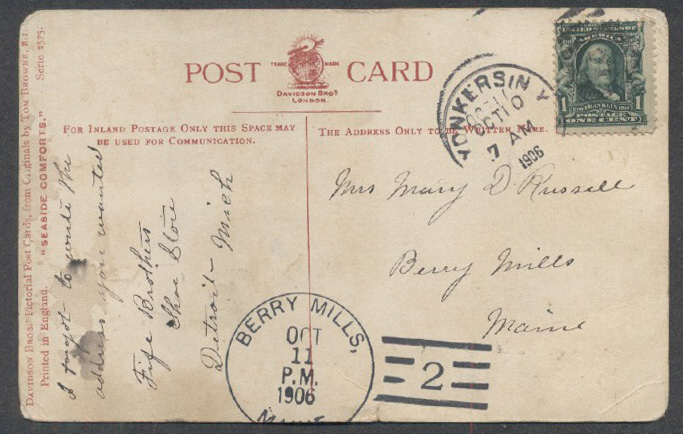 POST CARD
TRADE MARK
DAVIDSON BROS
LONDON.
FOR INLAND POSTAGE ONLY THIS SPACE MAY
BE USED FOR COMMUNICATION.
THE ADDRESS ONLY TO BE WRITTEN HERE.
DAVIDSON BROS. PICTORIAL POST CARDS, FROM ORIGINALS BY TOM BROWNE, R.I.
Printed in England. "SEASIDE COMFORTS." Serie 2575.
I forgot to write the
address you wanted
Fife Brothers
Shoe Store
Detroit - Mich
YONKERS N Y
OCT 10
7 AM
1906
UNITED STATES OF
AMERICA
FRANKLIN
1 POSTAGE 1
ONE CENT
Mrs Mary D. Russell
Berry Mills
Maine
BERRY MILLS,
OCT
11
P.M.
1906
MAINE
2